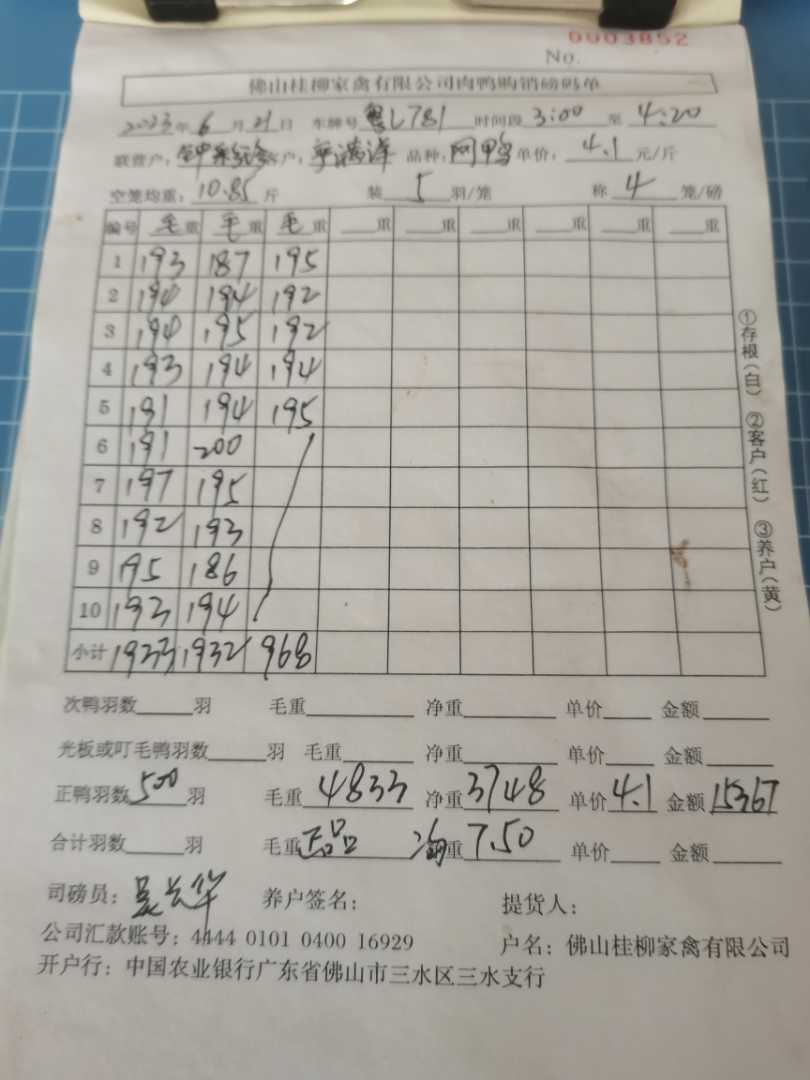 0003852
No.
佛山桂柳家禽有限公司肉鸭购销磅码单
2023年 6 月 21 日 车牌号 粤L781 时间段 3:00 至 4:20
联营户: 客户: 品种: 网鸭 单价: 4.1 元/斤
空笼均重: 10.85 斤 装 5 羽/笼 称 4 笼/磅
编号 毛重 毛重 毛重 重 重 重 重 重 重
1 193 187 195
2 194 194 192
3 194 195 192
4 193 194 194
5 191 194 195
6 191 200
7 197 195
8 192 193
9 195 186
10 193 194
小计 1933 1932 968
①存根(白) ②客户(红) ③养户(黄)
次鸭羽数 羽 毛重 净重 单价 金额
光板或叮毛鸭羽数 羽 毛重 净重 单价 金额
正鸭羽数 500 羽 毛重 4833 净重 3748 单价 4.1 金额 15367
合计羽数 羽 毛重 正品 净重 7.50 单价 金额
司磅员: 养户签名: 提货人:
公司汇款账号: 4444 0101 0400 16929 户名: 佛山桂柳家禽有限公司
开户行: 中国农业银行广东省佛山市三水区三水支行